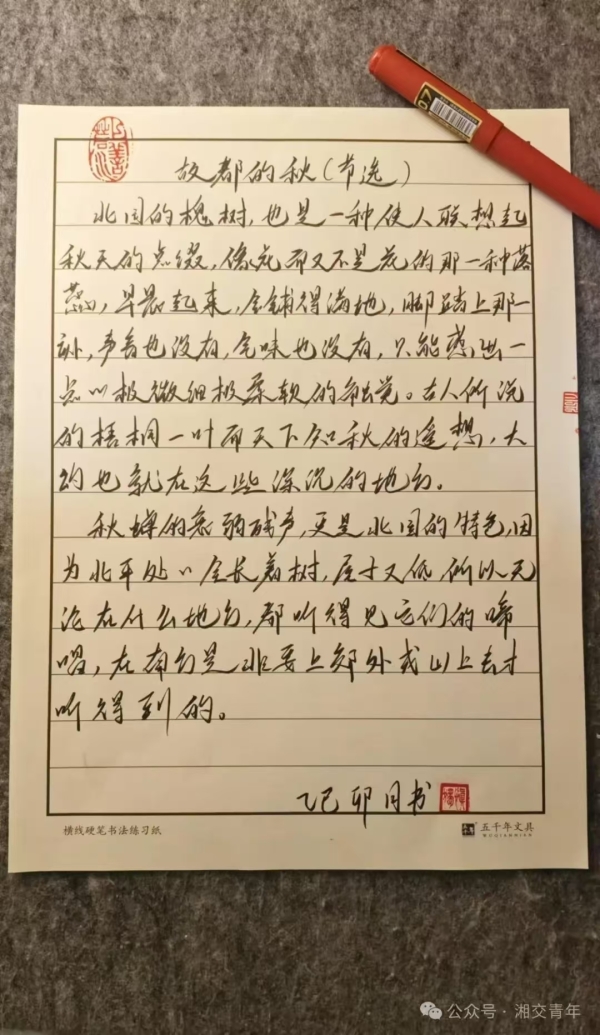 07
故都的秋(节选)
北国的槐树,也是一种使人联想起
秋天的点缀,像花而又不是花的那一种落
蕊,早晨起来,全铺得满地,脚踏上那一
刻,声音也没有,气味也没有,只能感出一
点〃极微细极柔软的触觉。古人所说
的梧桐一叶而天下知秋的遥想,大
约也就在这些深沉的地方。
秋蝉的衰弱残声,更是北国的特色,因
为北平处〃全长着树,屋子又低,所以无
论在什么地方,都听得见它们的啼
唱,在南方是非要上郊外或山上去才
听得到的。
乙巳卯月书
横线硬笔书法练习纸
五千年文具
WUQIANNIAN
公众号·湘交青年